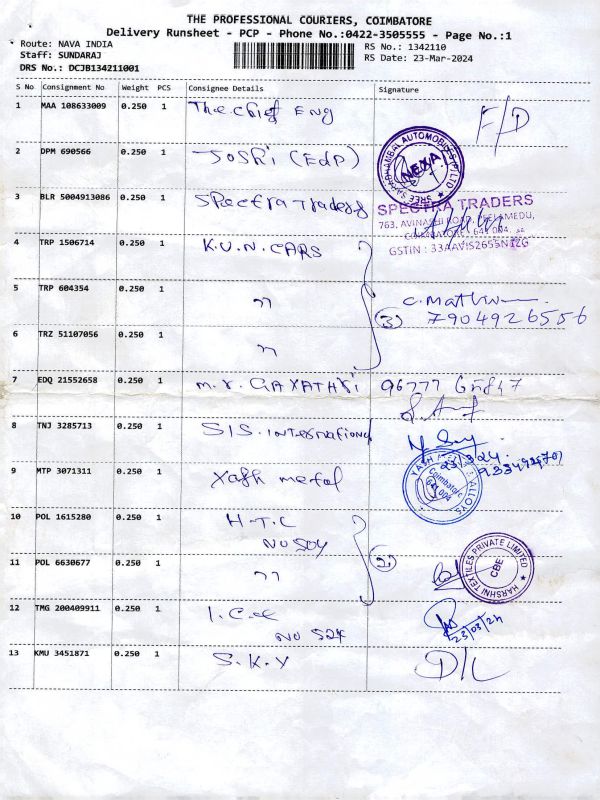 THE PROFESSIONAL COURIERS, COIMBATORE
Delivery Runsheet - PCP - Phone No.:0422-3505555 - Page No.:1
Route: NAVA INDIA RS No.: 1342110
Staff: SUNDARAJ RS Date: 23-Mar-2024
DRS No.: DCJB134211001
S No Consignment No Weight PCS Consignee Details Signature
1 MAA 108633009 0.250 1 The Chief Eng F/D
2 DPM 690566 0.250 1 Joshi (EDP)
SREE SARADHAMBAL AUTOMOBILES P LTD
NEXA
3 BLR 5004913086 0.250 1 Spectra Traders SPECTRA TRADERS
763, AVINASHI ROAD, PEELAMEDU,
COIMBATORE - 641 004.
4 TRP 1506714 0.250 1 K.U.N. CARS GSTIN : 33AAVIS2655N1ZG
5 TRP 604354 0.250 1 " (3) 7904926556
6 TRZ 51107056 0.250 1 "
7 EDQ 21552658 0.250 1 M.R. GAYATHRI 96777 65847
8 TNJ 3285713 0.250 1 SIS. International
23/3/24
9 MTP 3071311 0.250 1 Yash metal
YASH METALS & ALLOYS
Coimbatore
641 004
10 POL 1615280 0.250 1 H.T.L
NO SDY
11 POL 6630677 0.250 1 " (2)
HARSHNI TEXTILES PRIVATE LIMITED
CBE
12 TMG 200409911 0.250 1
23/03/24
13 KMU 3451871 0.250 1 S.K.Y D/L